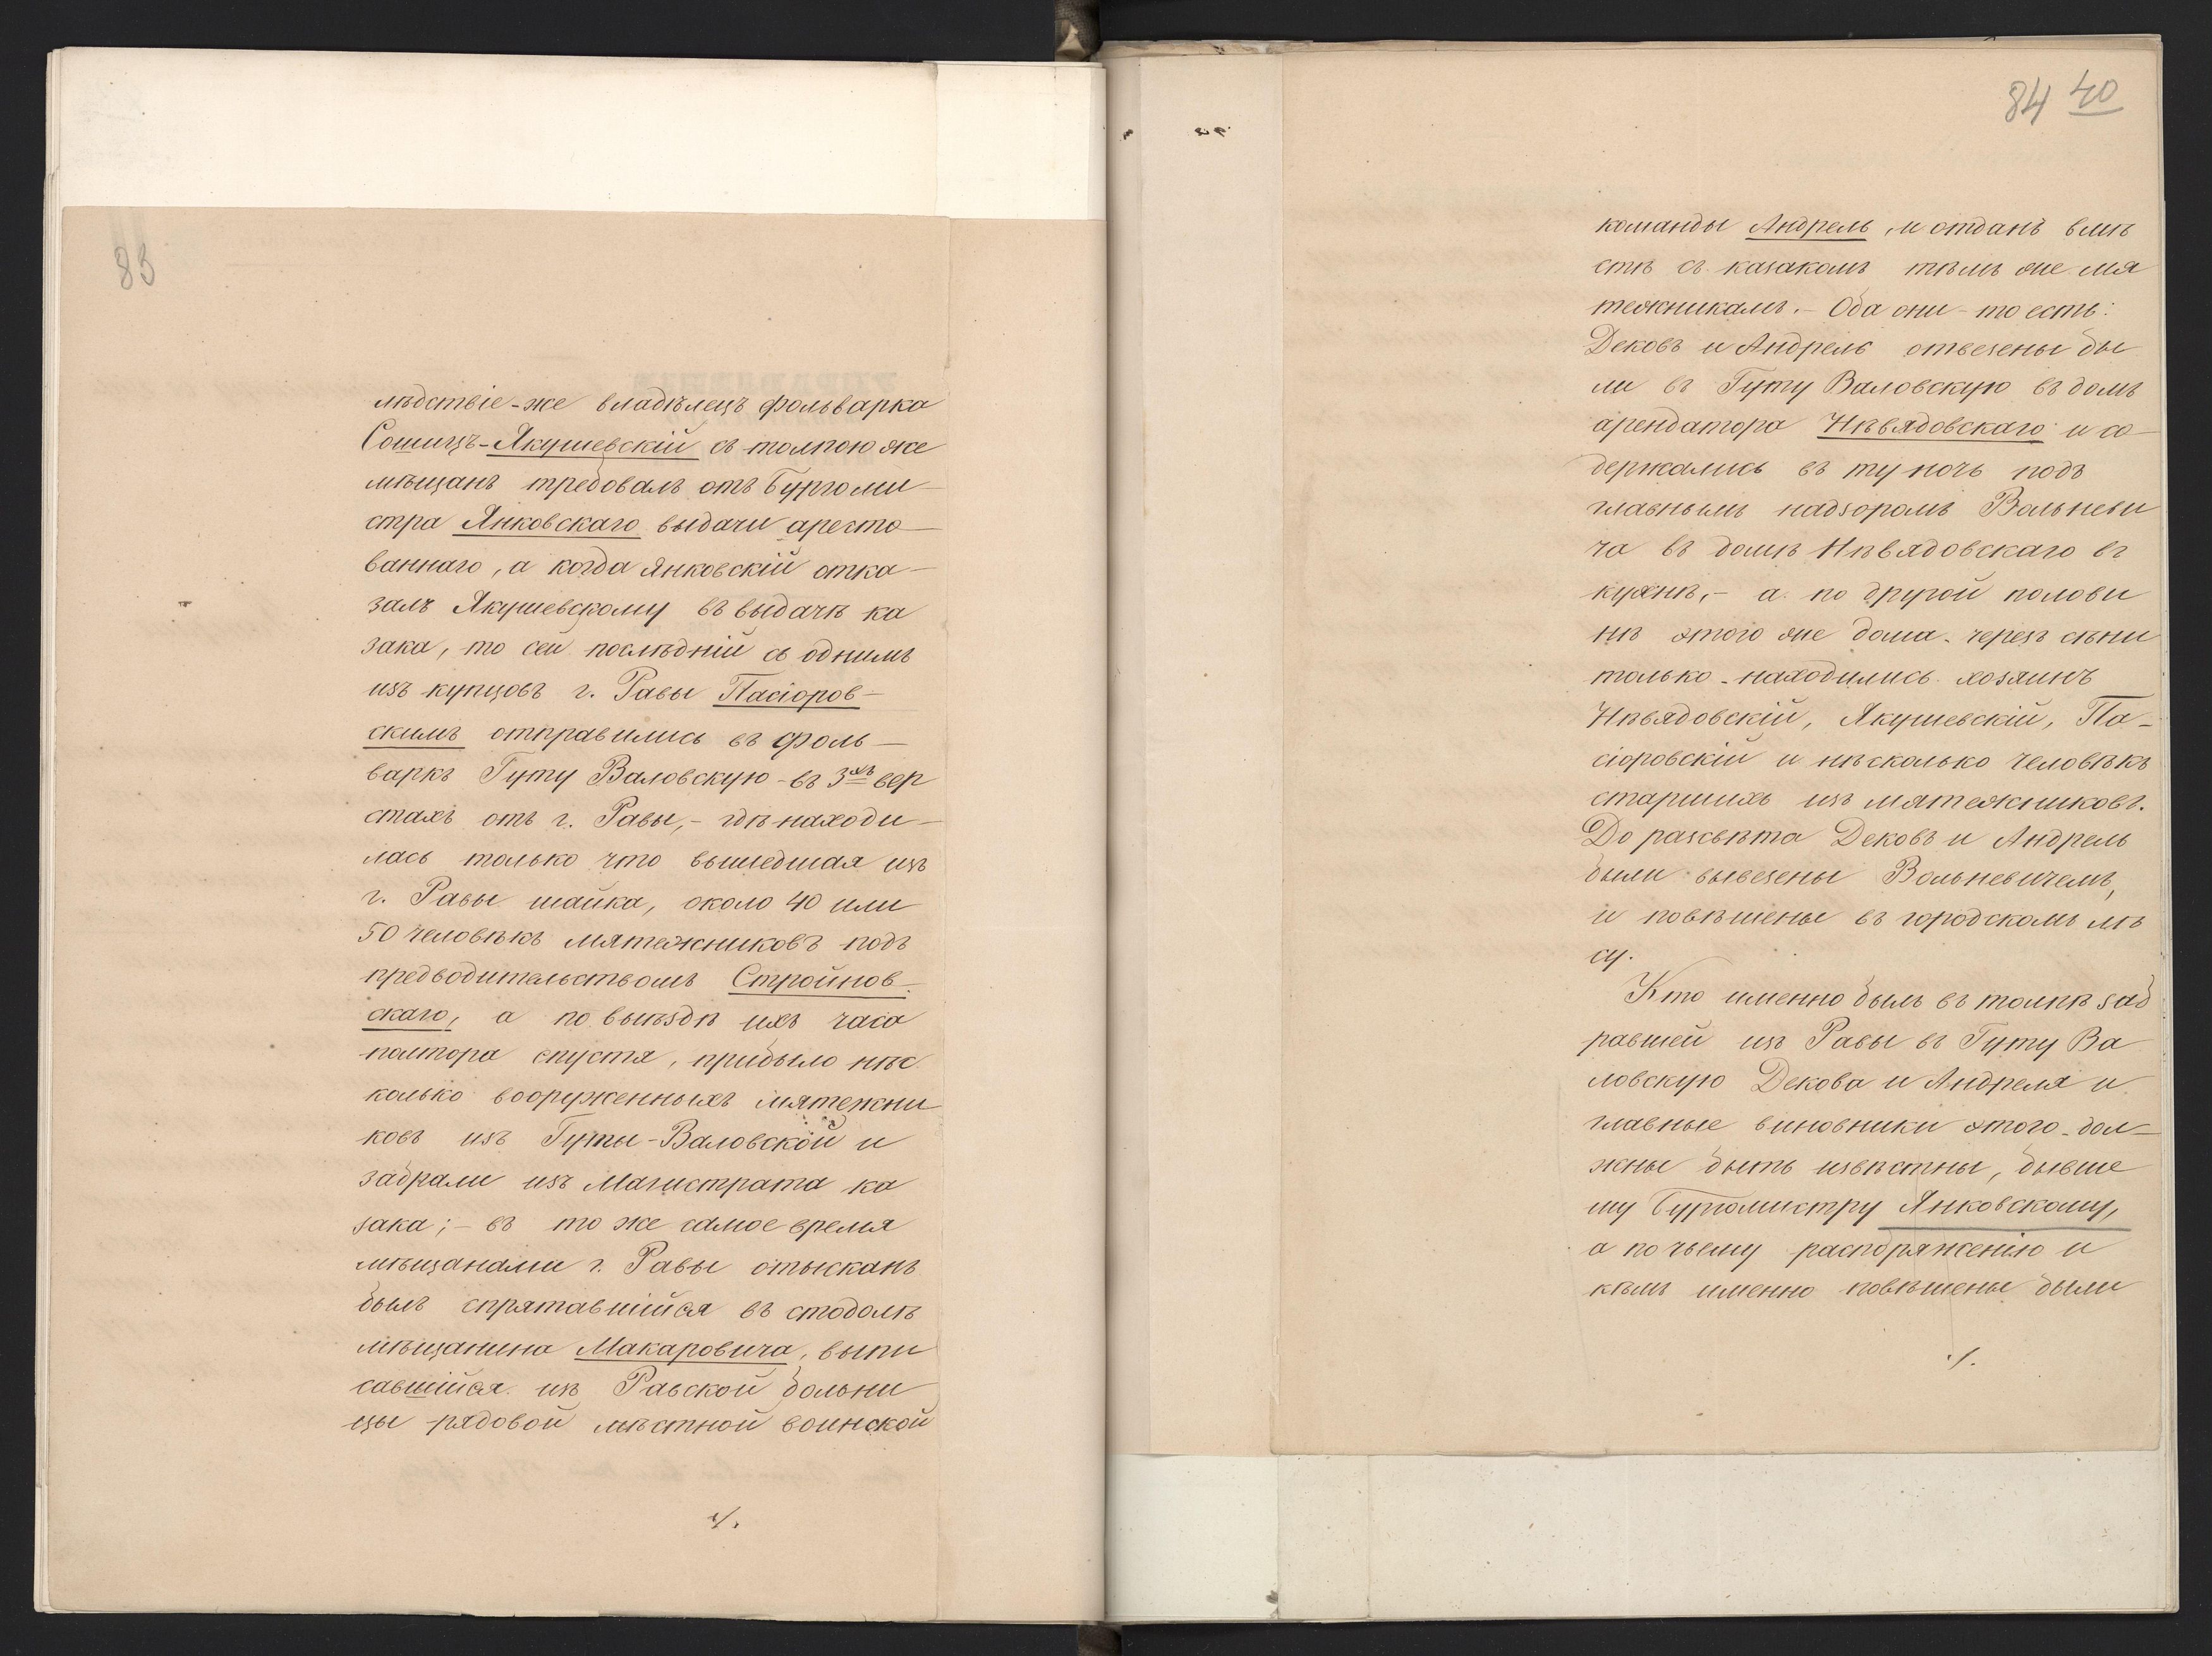 83
лѣдствіе-же владѣлецъ фольварка
Сошицъ-Якушевскій съ толпою же
мѣщанъ требовалъ отъ Бургоми-
стра Янковскаго выдачи аресто-
ваннаго, а когда Янковскій отка-
залъ Якушевскому въ выдачѣ ка
зака, то сей послѣдній съ однимъ
изъ купцовъ г. Равы Пасіоров-
скимъ отправились въ фоль-
варкъ Гуту Валовскую - въ 3хъ вер
стахъ отъ г. Равы, - гдѣ находи-
лась только что вышедшая изъ
г. Равы шайка, около 40 или
50 человѣкъ мятежниковъ подъ
предводительствомъ Стройнов-
скаго, а по выѣздѣ ихъ часа
полтора спустя, прибыло нѣс
колько вооруженныхъ мятежни
ковъ изъ Гуты-Валовской и
забрали изъ Магистрата ка
зака; - въ то же самое время
мѣщанами г. Равы отысканъ
былъ спрятавшійся въ стодолѣ
мѣщанина Макаровича, выпи
савшійся изъ Равской больни
цы рядовой мѣстной воинской
./.
84 40
команды Андрель, и отданъ вмѣ
стѣ съ казакомъ тѣмъ же мя
тежникамъ. - Оба они - то есть:
Дековъ и Андрель отвезены бы
ли въ Гуту Валовскую въ домъ
арендатора Нѣвядовскаго и со-
держались въ ту ночь подъ
главнымъ надзоромъ Вольневи
ча въ домѣ Нѣвядовскаго въ
кухнѣ, - а по другой полови
нѣ этого же дома - черезъ сѣни
только - находились хозяинъ
Нѣвядовскій, Якушевскій, Па-
сіоровскій и нѣсколько человѣкъ
старшихъ изъ мятежниковъ.
До разсвѣта Дековъ и Андрель
были вывезены Вольневичемъ,
и повѣшены въ городскомъ лѣ
су.
Кто именно былъ въ толпѣ заб
равшей изъ Равы въ Гуту Ва
ловскую Декова и Андреля и
главные виновники этого - дол-
жны быть извѣстны, бывше
му Бургомистру Янковскому,
а по чьему распоряженію и
кѣмъ именно повѣшены были
./.